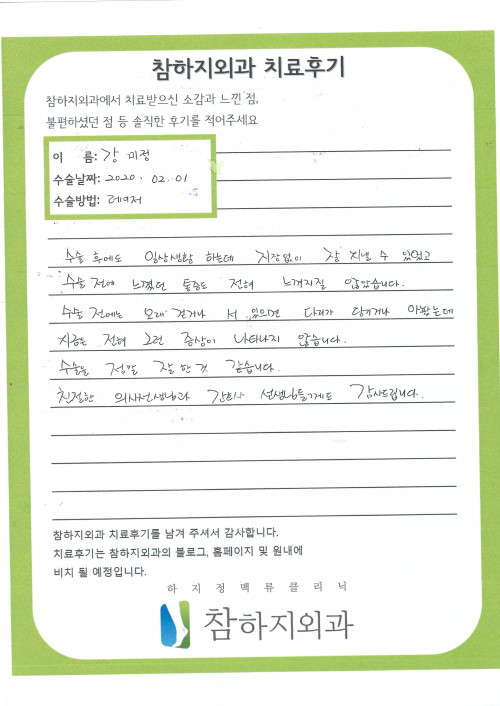 참하지외과 치료후기
참하지외과에서 치료받으신 소감과 느낀 점,
불편하셨던 점 등 솔직한 후기를 적어주세요
이 름: 강 미정
수술날짜: 2020. 02. 01
수술방법: 레이저
수술 후에도 일상생활 하는데 지장없이 잘 지낼 수 있었고
수술 전에 느꼈던 통증도 전혀 느껴지질 않았습니다.
수술 전에는 오래 걷거나 서 있으면 다리가 당기거나 아팠는데
지금은 전혀 그런 증상이 나타나지 않습니다.
수술을 정말 잘 한 것 같습니다.
친절한 의사선생님과 간호사 선생님들께도 감사드립니다.
참하지외과 치료후기를 남겨 주셔서 감사합니다.
치료후기는 참하지외과의 블로그, 홈페이지 및 원내에
비치 될 예정입니다.
하지정맥류클리닉
참하지외과